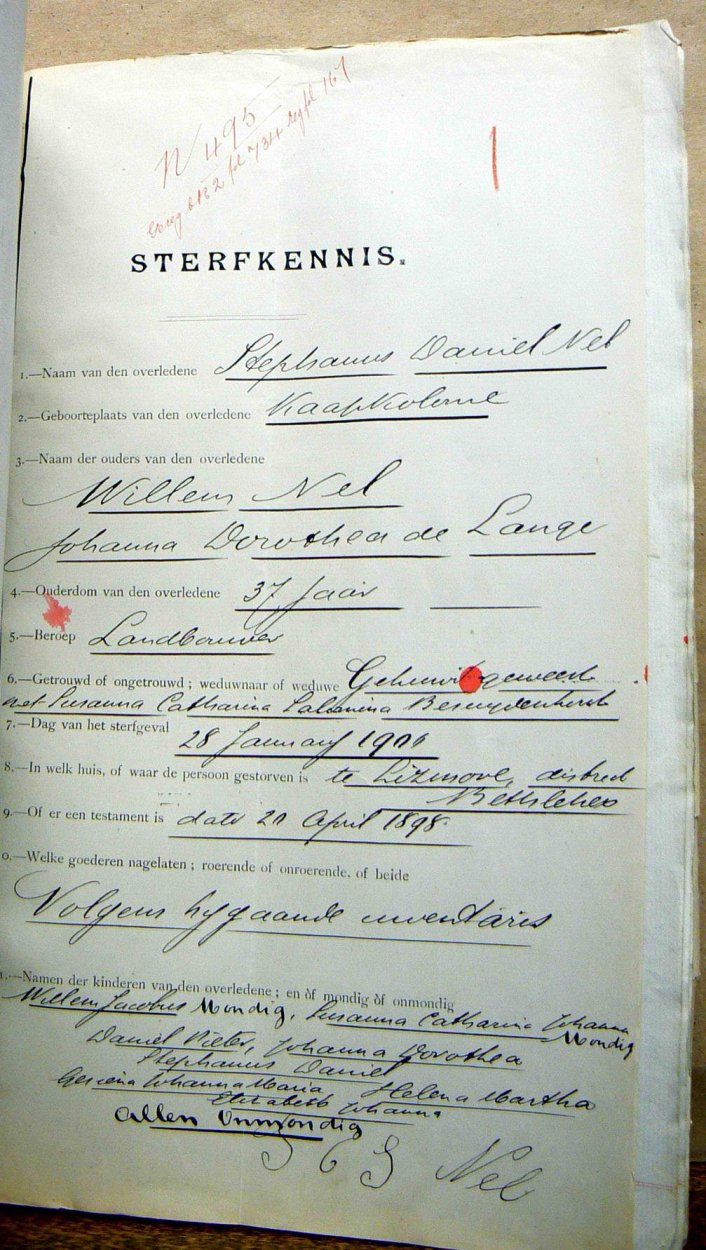 N 495
fol 734 167
STERFKENNIS.
1.—Naam van den overledene Stephanus Daniel Nel
2.—Geboorteplaats van den overledene Kaapkolonie
3.—Naam der ouders van den overledene
Willem Nel
Johanna Dorothea de Lange
4.—Ouderdom van den overledene 37 Jaar
5.—Beroep Landbouwer
6.—Getrouwd of ongetrouwd ; weduwnaar of weduwe Gehuwd geweest
met Susanna Catharina Salomina Bezuydenhout
7.—Dag van het sterfgeval
28 January 1906
8.—In welk huis, of waar de persoon gestorven is te district
Bethlehem
9.—Of er een testament is dato April 1898.
0.—Welke goederen nagelaten ; roerende of onroerende, of beide
Volgens bygaande inventaris
1.—Namen der kinderen van den overledene ; en òf mondig òf onmondig
Willem Jacobus Mondig, Susanna Catharina Johanna
Mondig
Daniel Pieter, Johanna Dorothea
Stephanus Daniel
Johanna Maria Helena Martha
Elizabeth Johanna
allen Onmondig
Nel